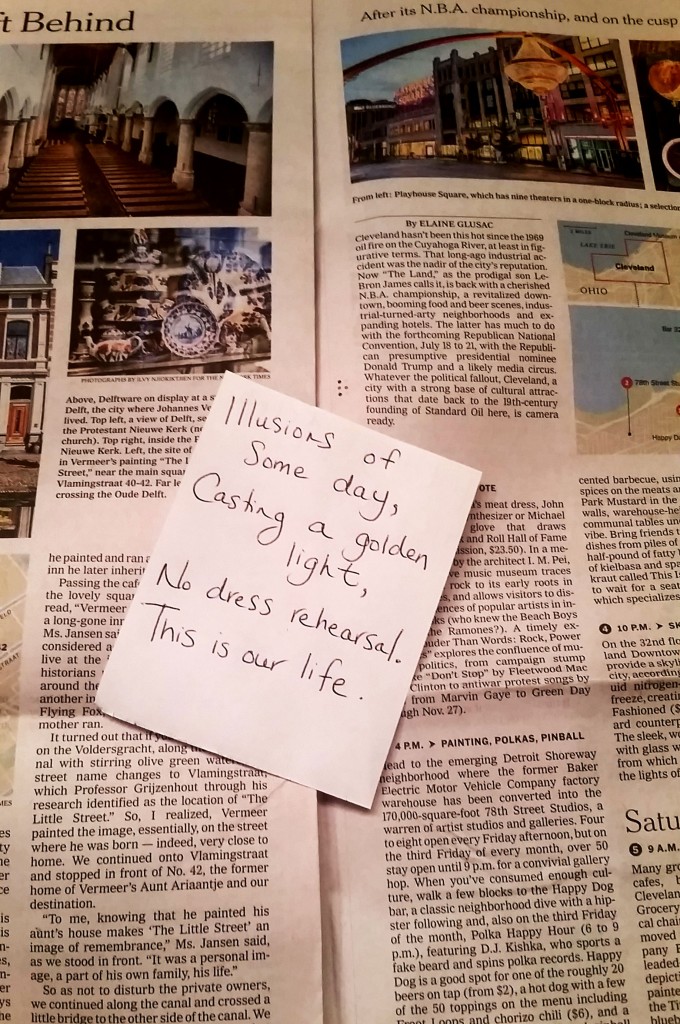 ft Behind
PHOTOGRAPHS BY ILVY NJIOKIKTJIEN FOR THE NEW YORK TIMES
Above, Delftware on display at a s
Delft, the city where Johannes Ve
lived. Top left, a view of Delft, se
the Protestant Nieuwe Kerk (ne
church). Top right, inside the
Nieuwe Kerk. Left, the site of
in Vermeer's painting "The L
Street," near the main squa
Vlamingstraat 40-42. Far le
crossing the Oude Delft.
he painted and ran a
inn he later inheri
Passing the caf
the lovely squa
read, "Vermeer
a long-gone inn
Ms. Jansen sai
considered a
live at the
historians
around the
another in
Flying Fox,
mother ran.
It turned out that if
on the Voldersgracht, along
nal with stirring olive green wate
street name changes to Vlamingstraat,
which Professor Grijzenhout through his
research identified as the location of "The
Little Street." So, I realized, Vermeer
painted the image, essentially, on the street
where he was born — indeed, very close to
home. We continued onto Vlamingstraat
and stopped in front of No. 42, the former
home of Vermeer's Aunt Ariaantje and our
destination.
"To me, knowing that he painted his
aunt's house makes 'The Little Street' an
image of remembrance," Ms. Jansen said,
as we stood in front. "It was a personal im-
age, a part of his own family, his life."
So as not to disturb the private owners,
we continued along the canal and crossed a
little bridge to the other side of the canal. We
Illusions of
Some day,
Casting a golden
light,
No dress rehearsal.
This is our life.
After its N.B.A. championship, and on the cusp
From left: Playhouse Square, which has nine theaters in a one-block radius; a selection
By ELAINE GLUSAC
Cleveland hasn't been this hot since the 1969
oil fire on the Cuyahoga River, at least in fig-
urative terms. That long-ago industrial ac-
cident was the nadir of the city's reputation.
Now "The Land," as the prodigal son Le-
Bron James calls it, is back with a cherished
N.B.A. championship, a revitalized down-
town, booming food and beer scenes, indus-
trial-turned-arty neighborhoods and ex-
panding hotels. The latter has much to do
with the forthcoming Republican National
Convention, July 18 to 21, with the Republi-
can presumptive presidential nominee
Donald Trump and a likely media circus.
Whatever the political fallout, Cleveland, a
city with a strong base of cultural attrac-
tions that date back to the 19th-century
founding of Standard Oil here, is camera
ready.
LAKE ERIE
Cleveland
OHIO
78th Street St
Happy D
OTE
's meat dress, John
nthesizer or Michael
glove that draws
and Roll Hall of Fame
ssion, $23.50). In a me-
by the architect I. M. Pei,
ve music museum traces
rock to its early roots in
and allows visitors to dis-
ences of popular artists in-
ks (who knew the Beach Boys
the Ramones?). A timely ex-
ouder Than Words: Rock, Power
" explores the confluence of mu-
politics, from campaign stump
"Don't Stop" by Fleetwood Mac
Clinton to antiwar protest songs by
from Marvin Gaye to Green Day
ugh Nov. 27).
4 P.M. ➤ PAINTING, POLKAS, PINBALL
ead to the emerging Detroit Shoreway
neighborhood where the former Baker
Electric Motor Vehicle Company factory
warehouse has been converted into the
170,000-square-foot 78th Street Studios, a
warren of artist studios and galleries. Four
to eight open every Friday afternoon, but on
the third Friday of every month, over 50
stay open until 9 p.m. for a convivial gallery
hop. When you've consumed enough cul-
ture, walk a few blocks to the Happy Dog
bar, a classic neighborhood dive with a hip-
ster following and, also on the third Friday
of the month, Polka Happy Hour (6 to 9
p.m.), featuring D.J. Kishka, who sports a
fake beard and spins polka records. Happy
Dog is a good spot for one of the roughly 20
beers on tap (from $2), a hot dog with a few
of the 50 toppings on the menu including
Froot Loops and chorizo chili ($6), and a
cented barbecue, usin
spices on the meats a
Park Mustard in the
walls, warehouse-he
communal tables un
vibe. Bring friends t
dishes from piles of
half-pound of fatty
of kielbasa and spa
kraut called This I
to wait for a seat
which specializes
4 10 P.M. ➤ SK
On the 32nd flo
land Downtow
provide a skyli
city, accordin
uid nitrogen-
freeze, creatin
Fashioned ($
ard counterp
The sleek, w
with glass w
from which
the lights of
Satu
5 9 A.M.
Many gro
cafes, b
Cleveland
Grocery
cal chain
moved
pany B
leaded-
depicti
painte
the Ti
blueb